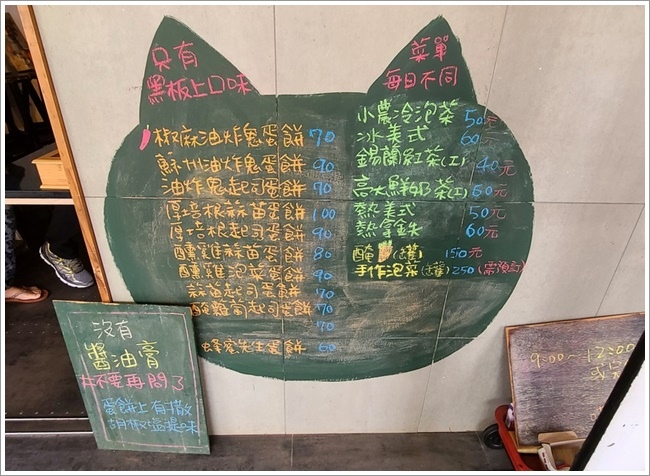 只有
黑板上口味
菜單
每日不同
椒麻油炸鬼蛋餅 70
蘇州油炸鬼蛋餅 90
油炸鬼起司蛋餅 70
厚培根蒜苗蛋餅 100
厚培根起司蛋餅 90
醺雞蒜苗蛋餅 80
醺雞泡菜蛋餅 90
蒜苗起司蛋餅 70
起司蛋餅 70
70
蜂蜜先生蛋餅 60
小農冷泡茶 50元
冰美式 60元
錫蘭紅茶(I) 40元
高大鮮奶茶(I) 60元
熱美式 50元
熱拿鉄 60元
醃 (罐) 150元
手作泡菜(罐) 250 (需預訂)
沒有
醬油膏
#不要再問了
蛋餅上有撒
胡椒塩提味
9:00～12:00